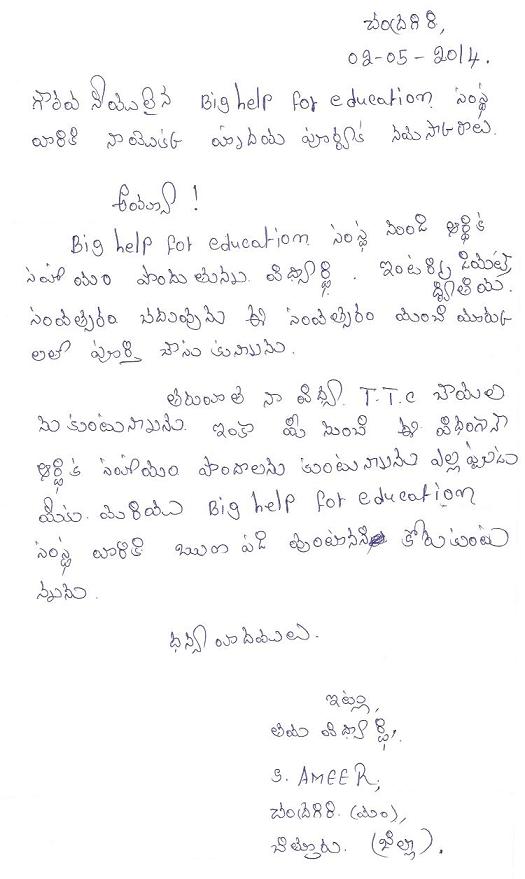 చంద్రగిరి,
02-05-2014.
గౌరవ నీయులైన Big help for education సంస్థ
వారికి నా యొక్క హృదయ పూర్వక నమస్కారాలు.
అయ్యా !
Big help for education సంస్థ నుండి ఆర్థిక
సహాయం పొందుతున్న విద్యార్థి . ఇంటర్మీడియట్
ద్వితీయ
సంవత్సరం చదువును ఈ సంవత్సరం మంచి మార్కు
లలో పూర్తి చేసు కున్నాను.
తరువాత నా విద్య T.T.C చేయాల
ను కుంటున్నాను. ఇంకా మీ నుంచి ఈ విధంగానే
ఆర్థిక సహాయం పొందాలను కుంటున్నాను ఎల్లప్పుడు
మీకు మరియు Big help for education
సంస్థ వారికి ఋణ పడి వుంటానని కోరుకుంటు
న్నాను.
ధన్యవాదములు.
ఇట్లు,
తమ విద్యార్థి,
S. AMEER,
చంద్రగిరి (మం),
చిత్తూరు. (జిల్లా).